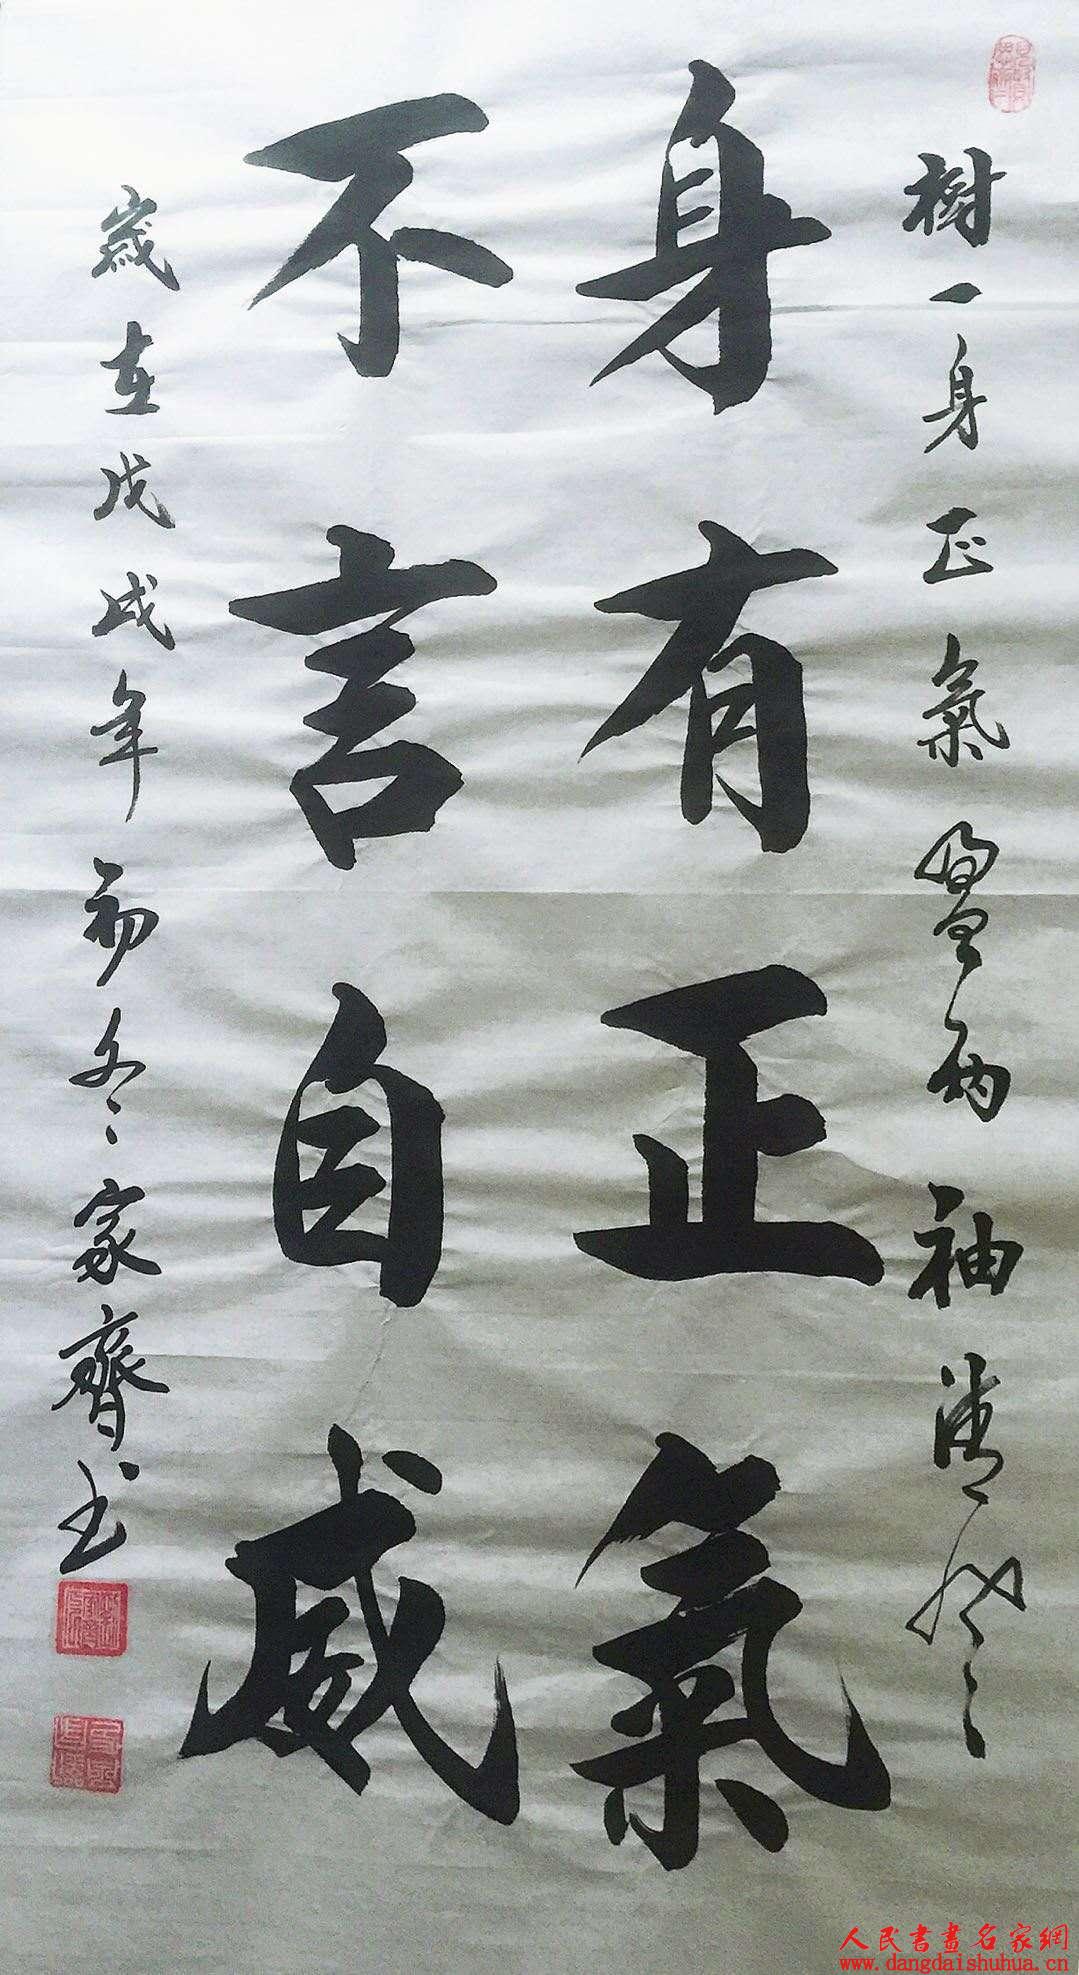 樹一身正氣盈两袖清风
身有正氣
不言自威
歲在戊戌年初冬家齊书
人民書畫名家網
www.dangdaishuhua.cn